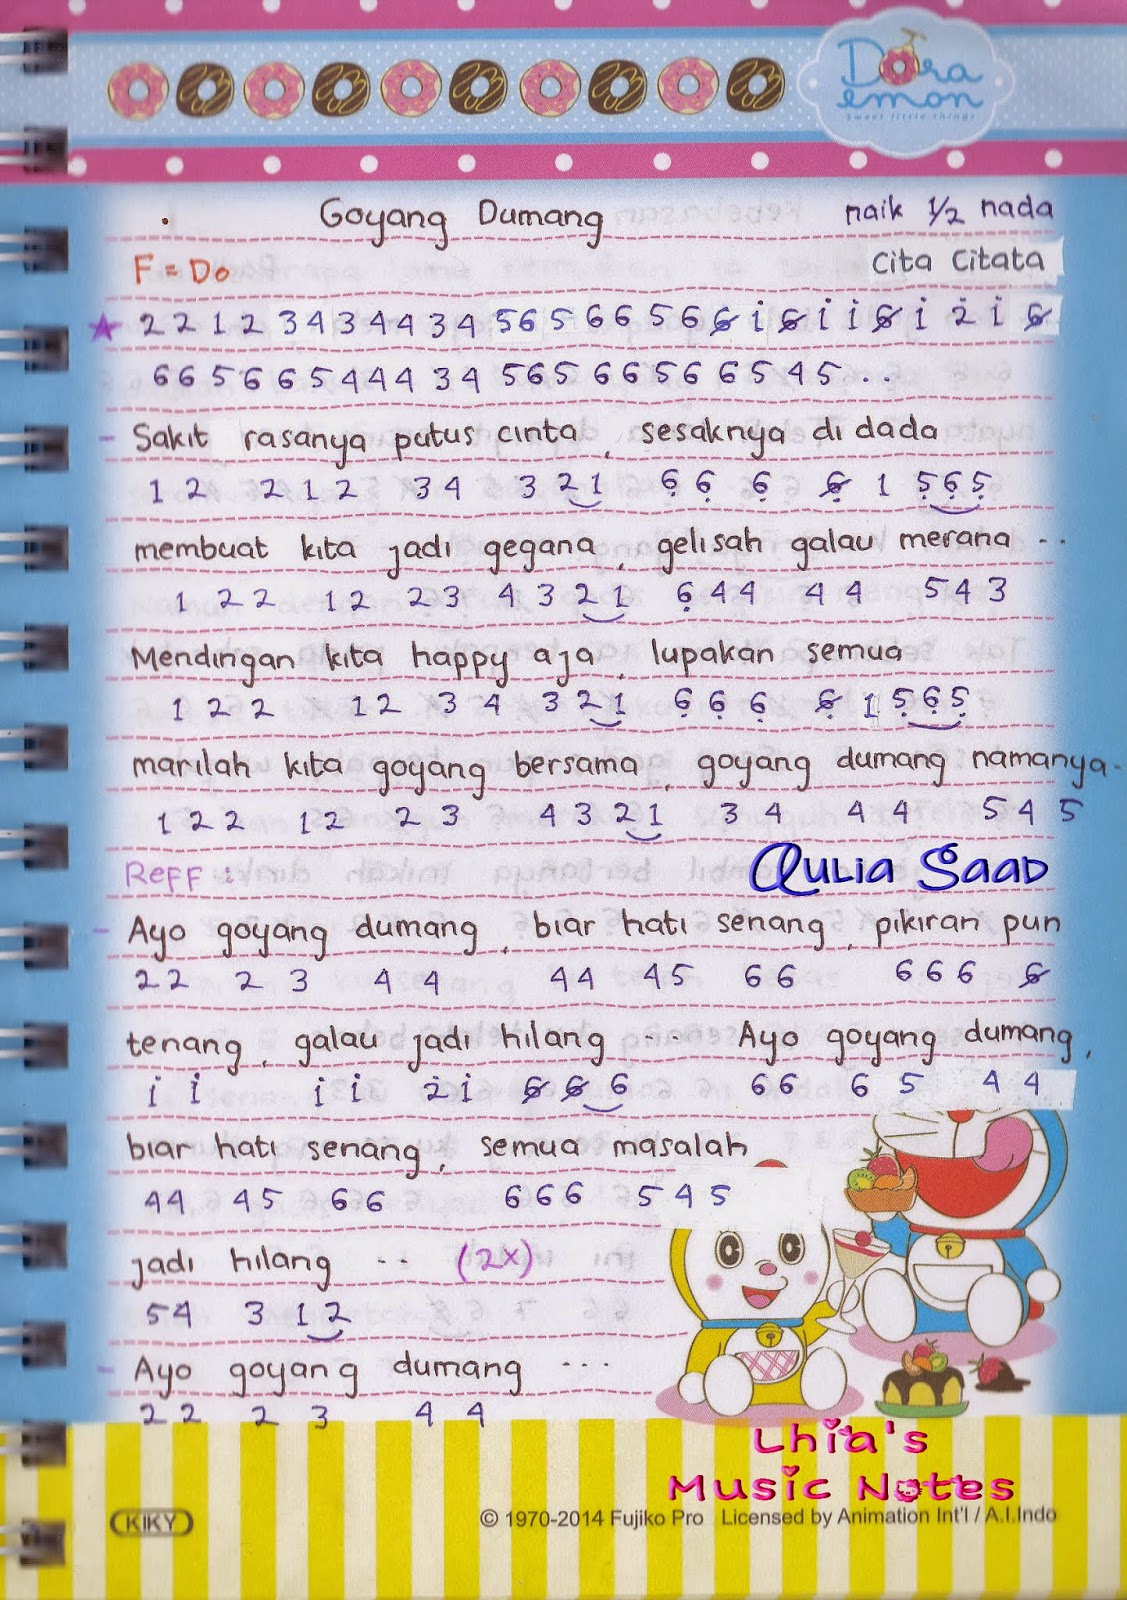 Dora
emon
Sweet little things
Goyang Dumang naik 1/2 nada
F = Do Cita Citata
★ 2 2 1 2 3 4 3 4 4 3 4 5 6 5 6 6 5 6 6̸ i 6̸ i i 6̸ i 2̇ i 6̸
6 6 5 6 6 5 4 4 4 3 4 5 6 5 6 6 5 6 6 5 4 5 . .
- Sakit rasanya putus cinta, sesaknya di dada
1 2 2 1 2 3 4 3 2 1 6̣ 6̣ 6̣ 6̸̣ 1 5̣ 6̣ 5̣
membuat kita jadi gegana, gelisah galau merana ..
1 2 2 1 2 2 3 4 3 2 1 6̣ 4 4 4 4 5 4 3
Mendingan kita happy aja, lupakan semua
1 2 2 1 2 3 4 3 2 1 6̣ 6̣ 6̣ 6̸̣ 1 5̣ 6̣ 5̣
marilah kita goyang bersama, goyang dumang namanya.
1 2 2 1 2 2 3 4 3 2 1 3 4 4 4 5 4 5
Reff : Aulia Saad
- Ayo goyang dumang, biar hati senang, pikiran pun
2 2 2 3 4 4 4 4 4 5 6 6 6 6 6 6̸
tenang, galau jadi hilang ... Ayo goyang dumang,
i i i i 2̇ i 6̸ 6̸ 6 6 6 6 5 4 4
biar hati senang, semua masalah
4 4 4 5 6 6 6 6 6 5 4 5
jadi hilang .. (2x)
5 4 3 1 2
- Ayo goyang dumang ...
2 2 2 3 4 4
Lhia's
Music Notes
KIKY
© 1970-2014 Fujiko Pro Licensed by Animation Int'l / A.I.Indo